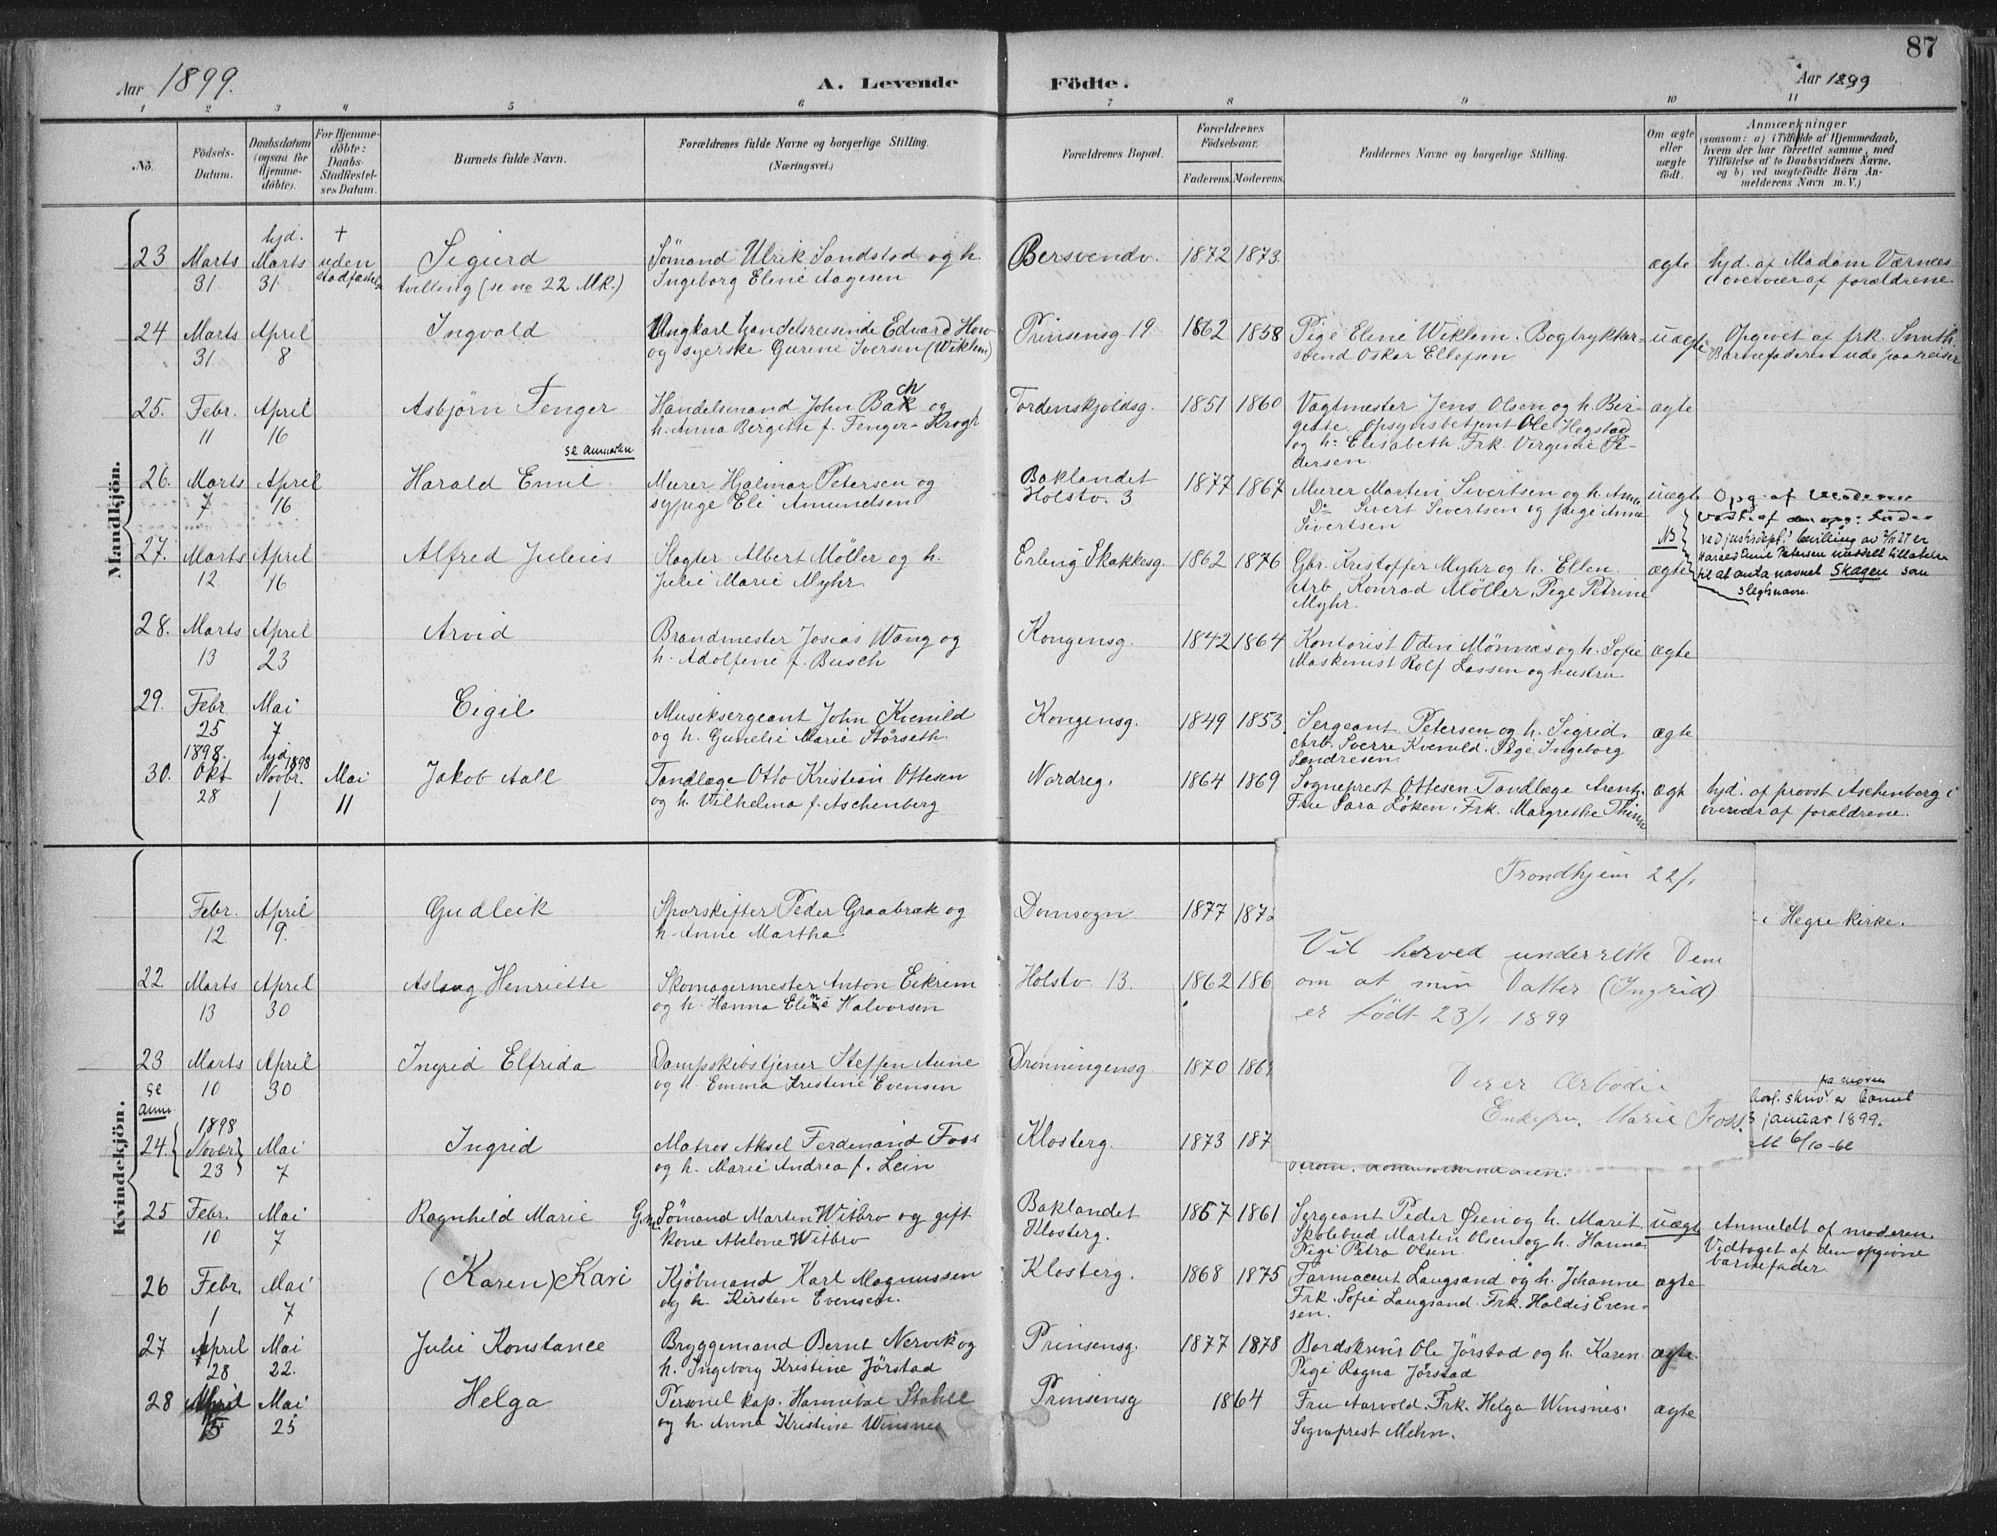 87
Aar 1899. A. Levende Födte. Aar 1899
1 2 3 4 5 6 7 8 9 10 11
No.
Födsels-
Datum.
Daabsdatum
(ogsaa for
Hjemme-
döbte).
For Hjemme-
döbte:
Daabs-
Stadfæstel-
ses Datum.
Barnets fulde Navn.
Forældrenes fulde Navne og borgerlige Stilling.
(Næringsvei.)
Forældrenes Bopæl.
Forældrenes
Födselsaar.
Faderens. Moderens.
Faddernes Navne og borgerlige Stilling.
Om ægte
eller
uægte
födt.
Anmærkninger
(saasom: a) i Tilfælde af Hjemmedaab,
hvem der har forrettet samme, med
Tilföielse af to Daabsvidners Navne.
og b) ved uægtefödte Börn An-
melderens Navn m. V.)
Mandkjön.
hjd. +
23 Marts Marts uden Sigurd Sömand Ulrik Sandstad og h. Bersvendv. 1872 1873 ægte hjd. af Madam Værnes
31 31 stadfæstelse tvilling (se no 22 Mk.) Ingeborg Eline Aagesen i overvær af forældrene.
24 Marts April Ingvald Ungkarl handelsreisende Edvard How- Prinsensg 19 1862 1858 Pige Eline Wiklem. Bogtrykker- uægte Opgivet af frk. Smith
31 8 og syerske Gurine Iversen (Wiklem) svend Oskar Ellefsen Barnefaderen ude paa reiser
25. Febr. April Asbjörn Fenger Handelsmand John Bach og Tordenskjoldsg. 1851 1860 Vagtmester Jens Olsen og h. Ber- ægte
11 16 h. Anna Bergitte f. Fenger-Krogh gitte. opsynsbetjent Ole Hegstad
og h. Elisabeth. Frk. Virginie Pe-
dersen.
se anmerkn.
26. Marts April Harald Emil Murer Hjalmar Petersen og Baklandet 1877 1867 Murer Martin Sivertsen og h. Anne uægte Opg. af Moderen
7 16 sypige Eli Amundsen Holstv. 3 Do Sivert Sivertsen og pige Anna
Sivertsen
Vedt. af den opg: fader
NB ved justisdept.s bevilling av 2/11 27 er
Harald Emil Petersen meddelt tillatelse
til at anta navnet Skagen som
slegtsnavn.
27. Marts April Alfred Julius Slagter Albert Möller og h. Erling Skakkesg. 1862 1876 Gbr. Kristoffer Myhr og h. Ellen. ægte
12 16 Julie Marie Myhr. Arb. Konrad Möller. Pige Petrine
Myhr.
28. Marts April Arvid Brandmester Josias Wang og Kongensg. 1842 1864 Kontorist Oden Mönnes og h. Sofie ægte
13 23 h. Adolfine f. Busch Maskinist Rolf Lassen og hustru
29. Febr. Mai Eigil Musiksergeant John Kvenild Kongensg. 1849 1853 Sergeant Petersen og h. Sigrid. ægte
25 7 og h. Gunelie Marie Störseth. Arb. Sverre Kvenild. Pige Ingeborg
Sendresen.
1898. hjd. 1898
30. Okt Novbr. Mai Jakob Aall Tandlæge Otto Kristian Ottesen Nordreg. 1864 1869 Sogneprest Ottesen. Tandlæge Arentz. ægte hjd. af provst Aschenberg i
28 1 11 og h. Vilhelma f. Aschenberg Fru Sara Löken. Frk. Margrethe overvær af forældrene.
Kvindekjön.
Febr. April Gudleik Sporskifter Peder Graabræk og Domsogn 1877 i Hegre kirke.
12 9. h. Anne Martha
22 Marts April Aslaug Henriette Skomagermester Anton Eikrem Holstv. 13. 1862 186
13 30 og h. Hanna Eline Halvorsen
23 Marts April Ingrid Elfrida Dampskibstjener Steffen Aune Dronningensg 1870
10 30 og h. Emma Kristine Evensen
se
anm.
1898
24. Novbr Mai Ingrid Matros Aksel Ferdinand Foss Klosterg. 1873 187
23 7 og h. Marie Andrea f. Lein
på moren
januar 1899.
6/10-61
Trondhjem 22/1
Vil herved underrette Dem
om at min Datter (Ingrid)
er födt 23/1 1899
Deres Ærbödie
Enkefru. Marie Foss.
25 Febr. Mai Ragnhild Marie Gm. Sömand Martin Witbro og gift Baklandet 1857 1861 Sergeant Peder Öien og h. Marit uægte Anmeldt af moderen.
10 7 kone Abelone Witbro Klosterg. Skolebud Martin Olsen og h. Hanna Vedtaget af den opgivne
Pige Petra Olsen barnefader.
26 Febr. Mai (Karen) Kari Kjöbmand Karl Magnussen Klosterg. 1868 1875 Farmaceut Langsand og h. Johanne ægte
1 7 og h. Kirsten Evensen. Frk. Sofie Langsand. Frk. Haldis Even-
sen.
27 April Mai Julie Konstance Bryggemand Bernt Nervik og Prinsensg. 1877 1878 Bordskriver Ole Jörstad og h. Karen. ægte.
28 22. h. Ingeborg Kristine Jörstad Pige Ragna Jörstad
28 April Mai Helga Premierl. kap. Hannibal Stahll Prinsensg 1864 Fru Aarvold. Frk. Helga Winsnes. ægte
15 25 og h. Anna Kristine Winsnes Sogneprest Mehn.